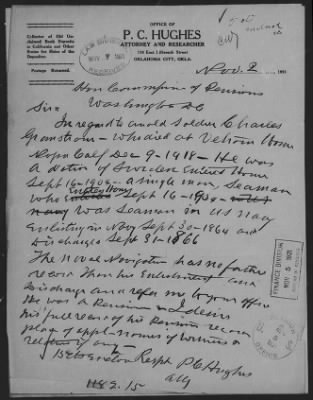 Collector of Old Unclaimed Bank Deposits in California and Other States for Heirs of the Depositor.
Postage Returned.
OFFICE OF
P. C. HUGHES
ATTORNEY AND RESEARCHER
OKLAHOMA CITY, OKLA.
LAW DIVISION
NOV 7 1931
RECEIVED
50¢ enclosed
Nov. 2 1931
Hon Commissioner of Pensions
Washington DC
Sir=
In regard to an old soldier Charles
Granstrom - who died at Veterans Home
Napa Calf Dec 9 - 1918 - He was
a native of Sweden Entered Home
Sept 16 - 1904 - a single man, Seaman
who Entered Home Sept 16 - 1904
navy Was Seaman in US Navy
Enlisting in Navy Sept 30 - 1864 and
Discharged Sept 31 - 1866
The Naval Navigation has no further
record than his Enlistment and
Discharge and refer me to your office
He was a Pensioner I desire
his full record of his Pension record
place of appl - names of witness
relatives if any -
Respt P C Hughes
Atty
FINANCE DIVISION
NOV 5 1931